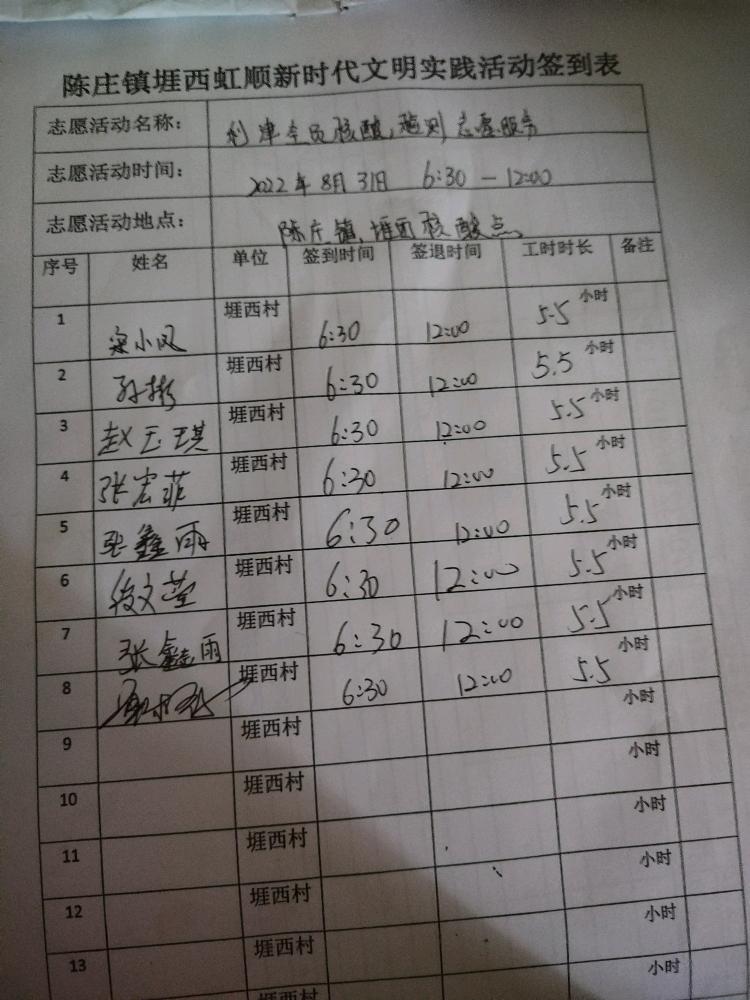 陈庄镇堐西虹顺新时代文明实践活动签到表
志愿活动名称： 利津全员核酸检测志愿服务
志愿活动时间： 2022年8月31日 6:30-12:00
志愿活动地点： 陈庄镇堐西核酸点
序号 姓名 单位 签到时间 签退时间 工时时长 备注
1 梁小凤 堐西村 6:30 12:00 5.5小时
2 孙彬 堐西村 6:30 12:00 5.5小时
3 赵玉琪 堐西村 6:30 12:00 5.5小时
4 张宏菲 堐西村 6:30 12:00 5.5小时
5 张鑫雨 堐西村 6:30 12:00 5.5小时
6 堐西村 6:30 12:00 5.5小时
7 张鑫雨 堐西村 6:30 12:00 5.5小时
8 堐西村 6:30 12:00 5.5小时
9 堐西村 小时
10 堐西村 小时
11 堐西村 小时
12 堐西村 小时
13 堐西村 小时
堐西村